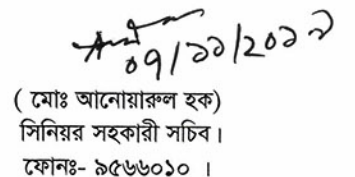 ০৭/১১/২০১৭
( মোঃ আনোয়ারুল হক)
সিনিয়র সহকারী সচিব।
ফোনঃ- ৯৫৬৬০১০ ।